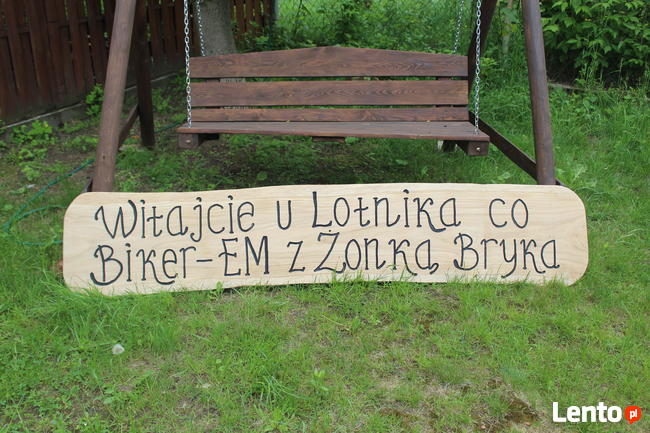 Witajcie u Lotnika co
Biker-EM z Żonką Bryka
Lento.pl